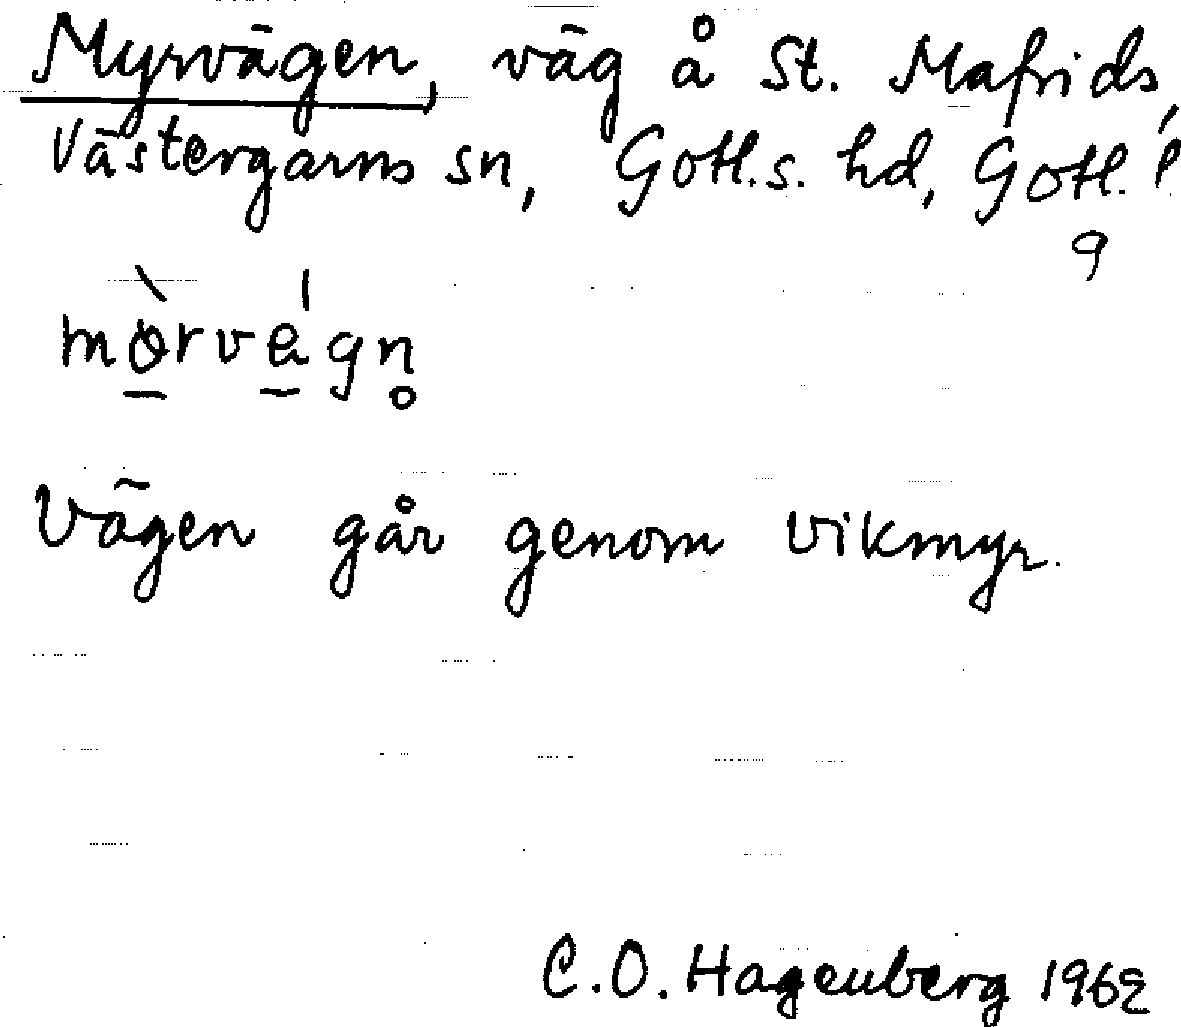 Myrvägen, väg å St. Mafrids,
Västergarns sn, Gotl. s. hd, Gotl. l
9
mørvegn̥
Vägen går genom Vikmyr.
C.O. Hagenberg 1962